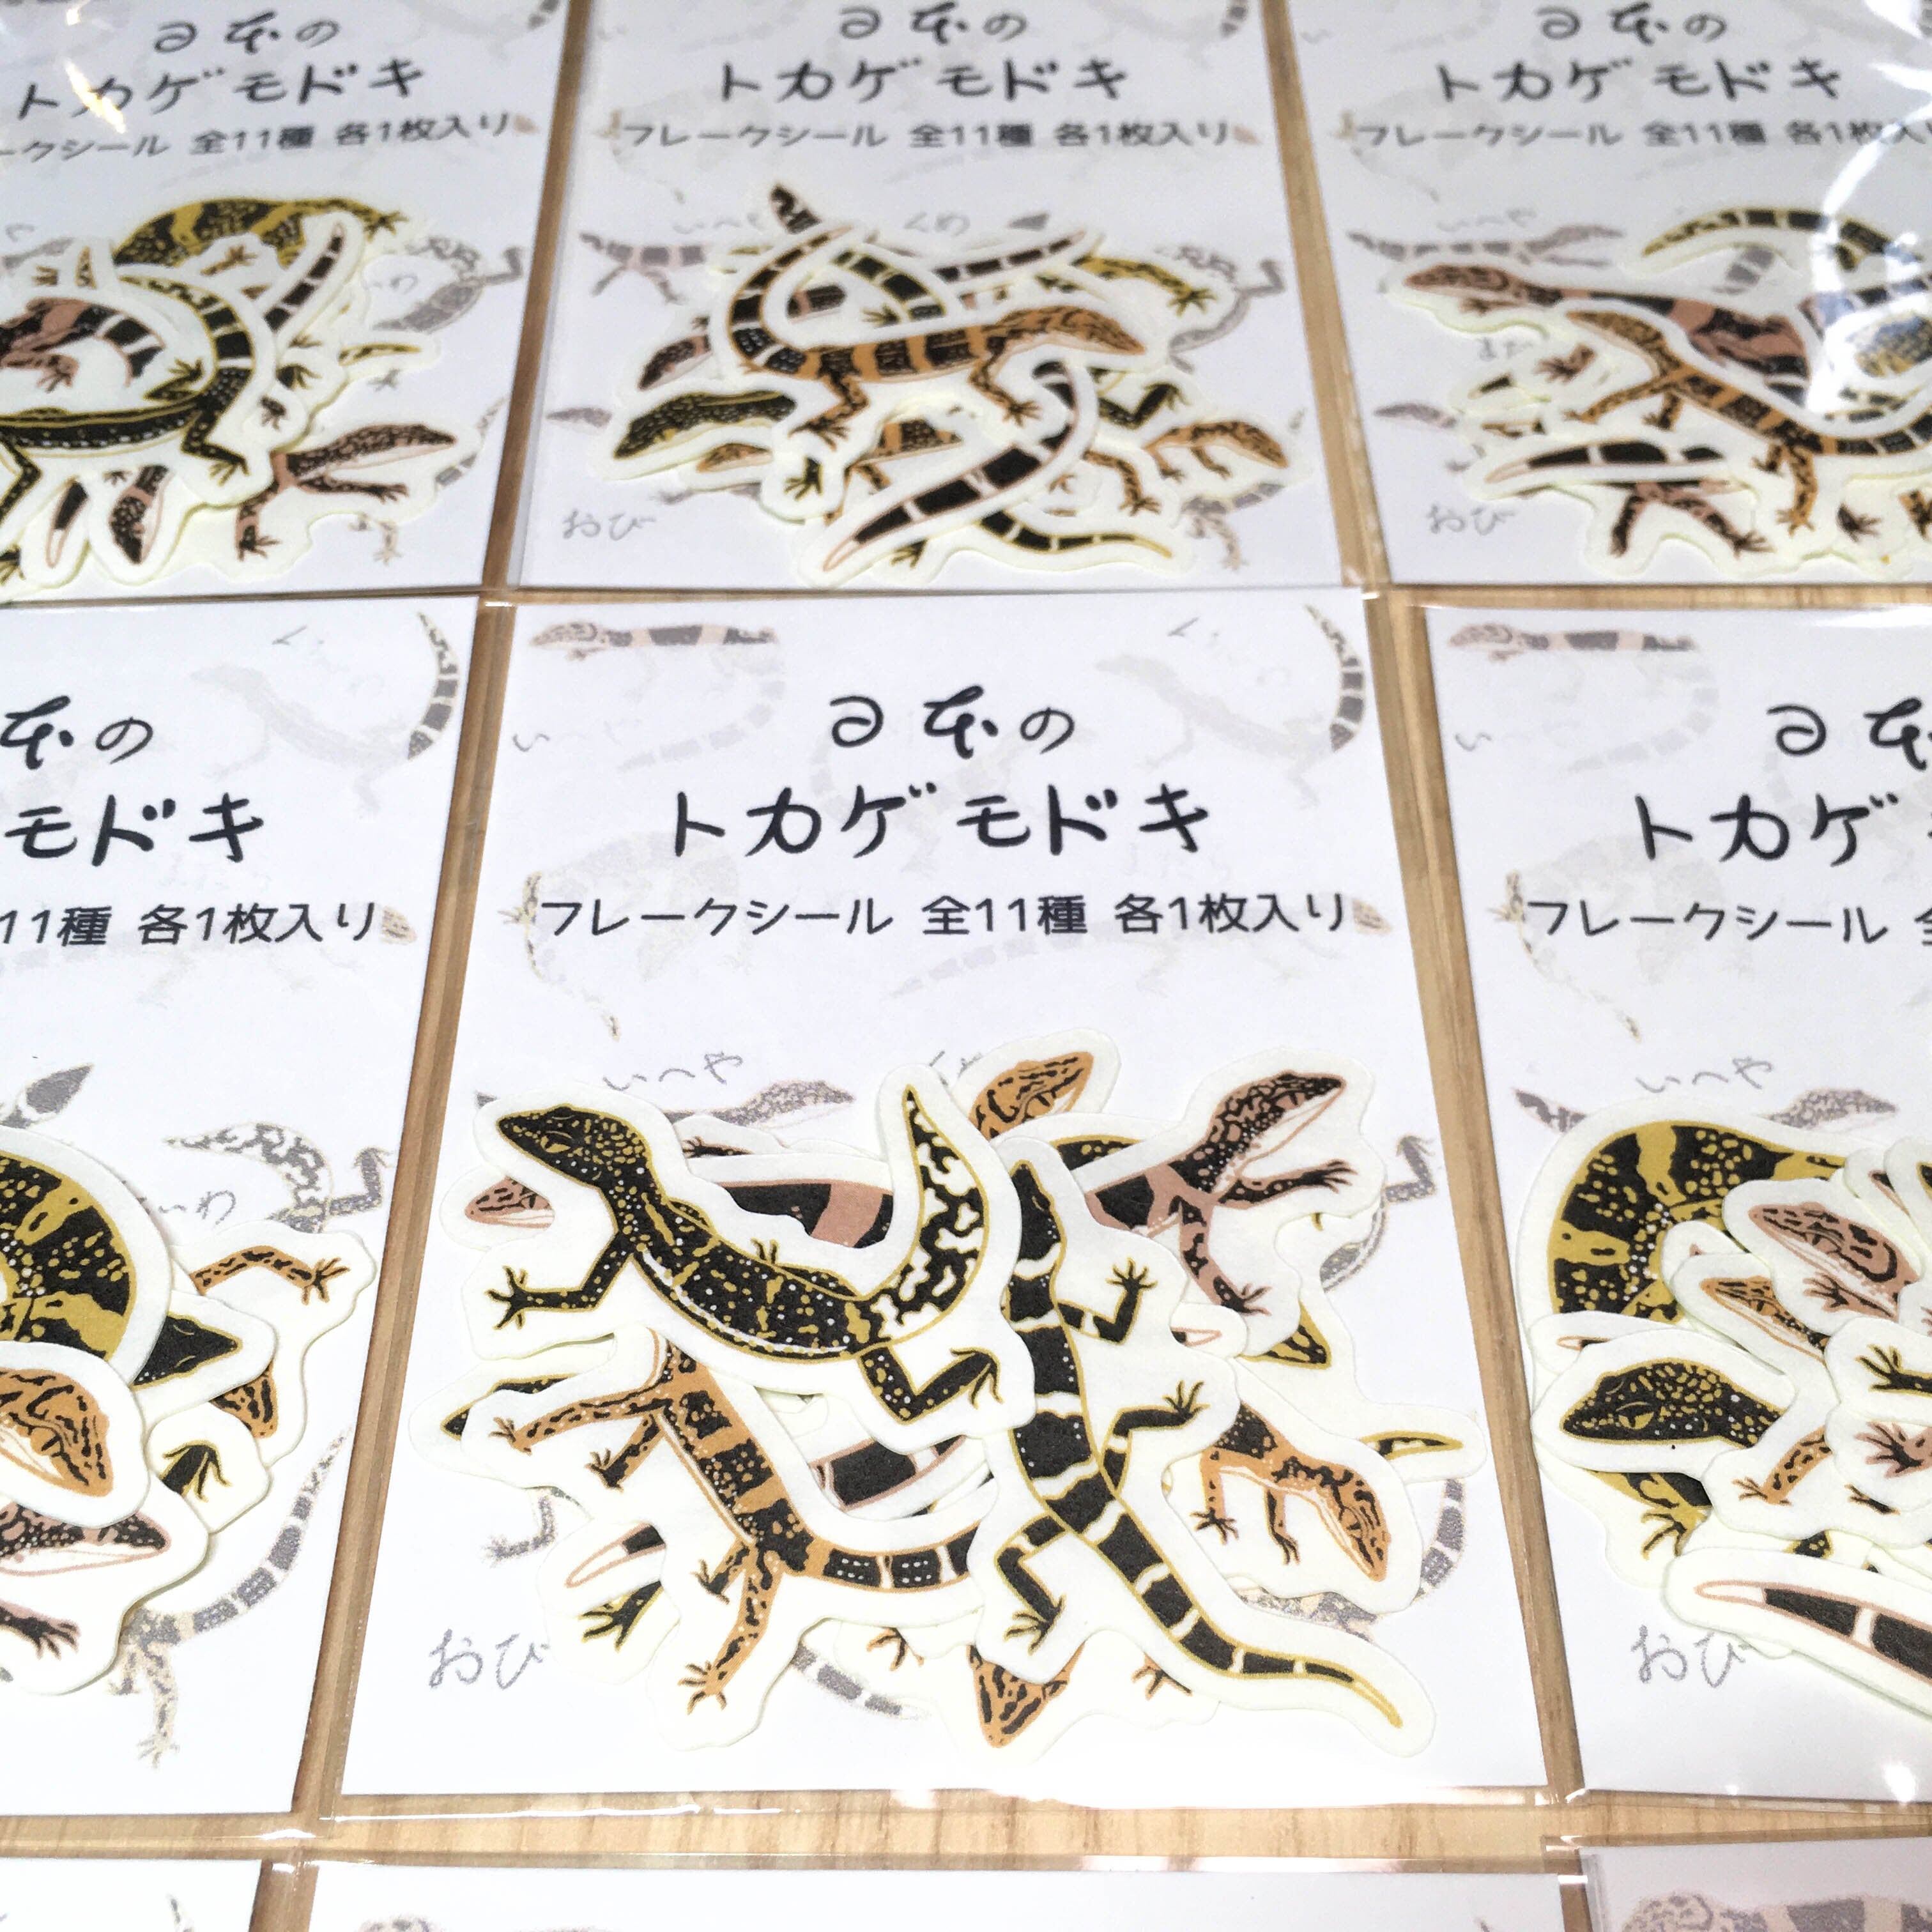 日本の
トカゲモドキ
ークシール 全11種 各1枚入り
日本の
トカゲモドキ
フレークシール 全11種 各1枚入り
いへや
くめ
おび
日本の
トカゲモドキ
フレークシール 全11種 各1枚入り
いへや
おび
本の
モドキ
11種 各1枚入り
日本の
トカゲモドキ
フレークシール 全11種 各1枚入り
いへや
おび
日本
トカゲ
フレークシール
いへや
おび